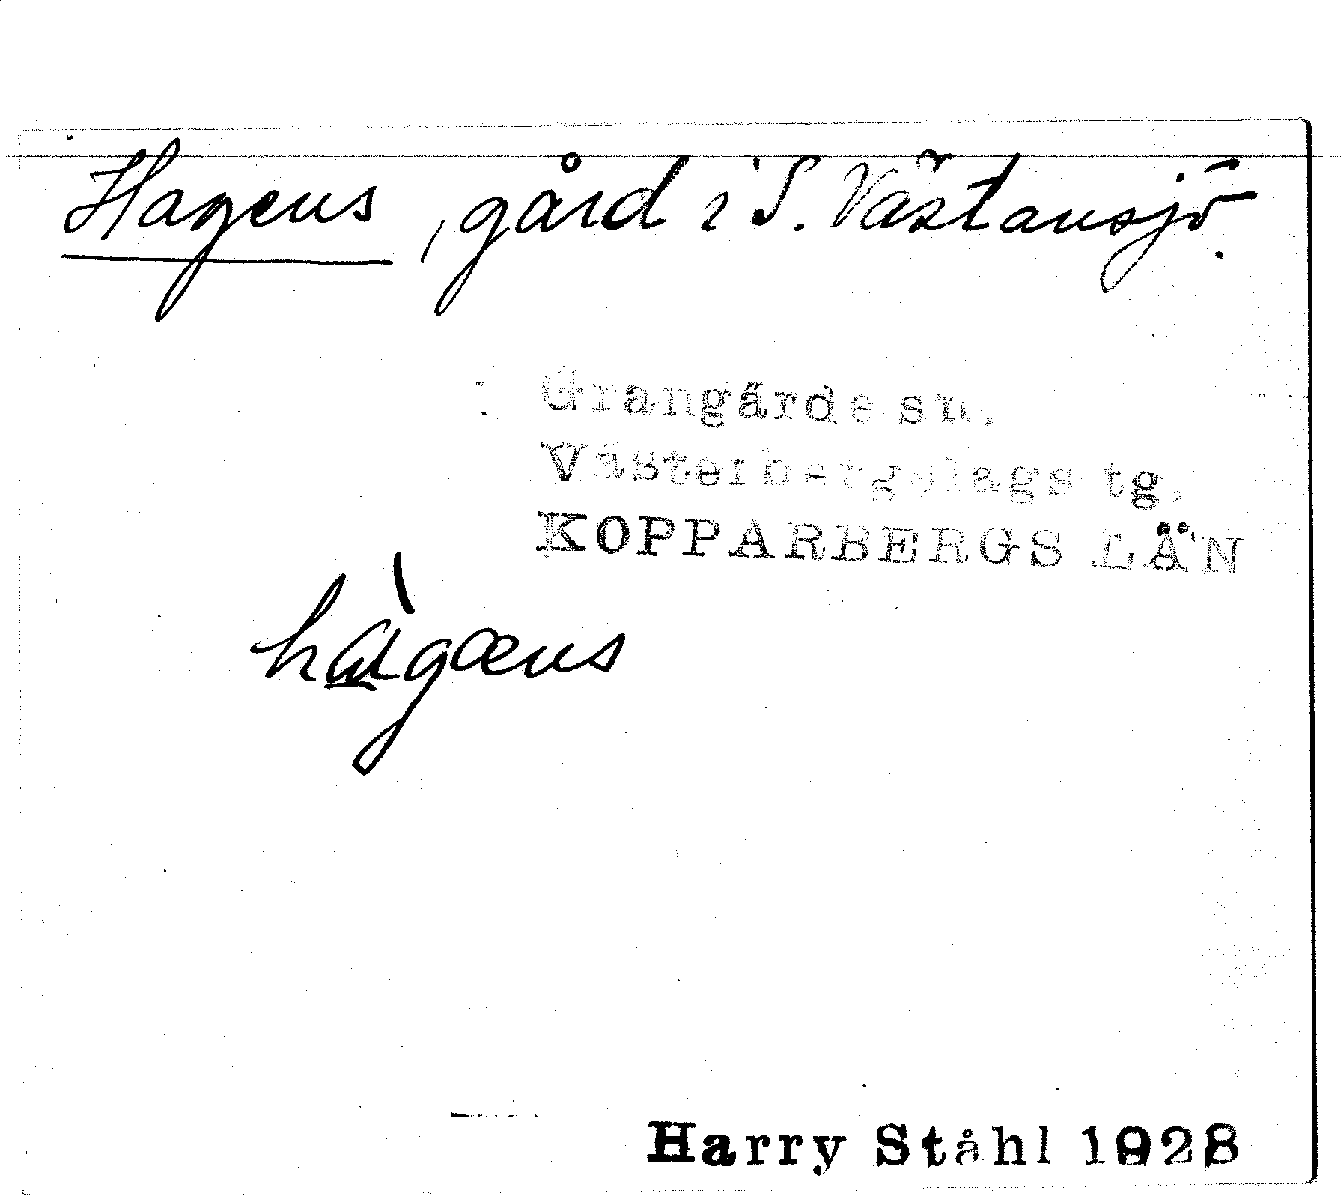 Hagens, gård i S. Västansjö.
Grangärde sn.
Västerbergslags tg.
KOPPARBERGS LÄN
hàgæns
Harry Ståhl 1928